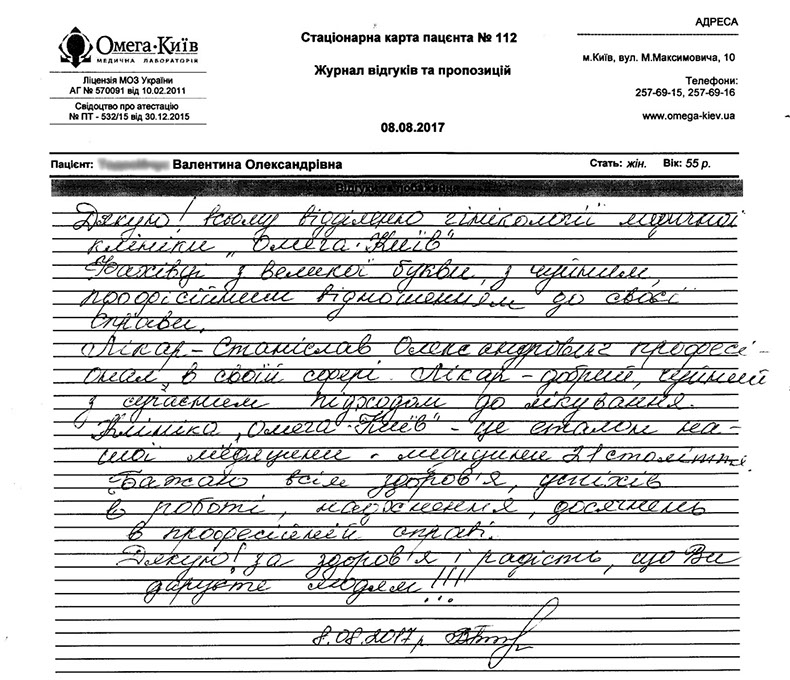 Омега·Київ
МЕДИЧНА ЛАБОРАТОРІЯ
Ліцензія МОЗ України
АГ № 570091 від 10.02.2011
Свідоцтво про атестацію
№ ПТ - 532/15 від 30.12.2015
Стаціонарна карта пацєнта № 112
Журнал відгуків та пропозицій
08.08.2017
АДРЕСА
м.Київ, вул. М.Максимовича, 10
Телефони:
257-69-15, 257-69-16
www.omega-kiev.ua
Пацієнт: Валентина Олександрівна Стать: жін. Вік: 55 р.
Відгуки та побажання
Дякую! всьому відділенню гінікології медичної
клініки „Омега·Київ"
Фахівці з великої букви, з чуйним,
професійним відношенням до своєї
справи.
Лікар – Станіслав Олександрович професі-
онал в своїй сфері. Лікар – добрий, чуйний
з сучасним підходом до лікування.
Клініка „Омега·Київ" - це еталон на-
шої медицини - медицини 21 століття.
Бажаю всім здоров'я, успіхів
в роботі, надхнення, досягнень
в професійній справі.
Дякую! за здоров'я і радість, що Ви
даруєте людям!!!!
8.08.2017 р.